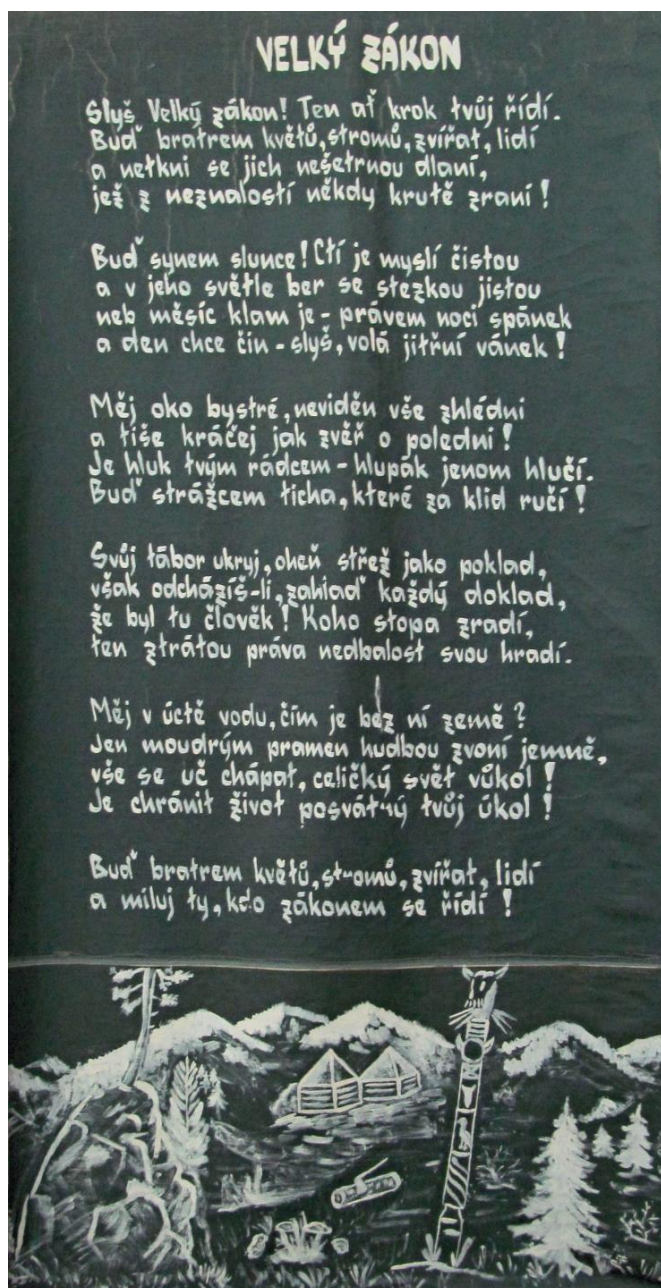 VELKÝ ZÁKON
Slyš Velký zákon! Ten ať krok tvůj řídí.
Buď bratrem květů, stromů, zvířat, lidí
a netkni se jich nešetrnou dlaní,
jež z neznalostí někdy krutě zraní!
Buď synem slunce! Ctí je myslí čistou
a v jeho světle ber se stezkou jistou
neb měsíc klam je - právem noci spánek
a den chce čin - slyš, volá jitřní vánek!
Měj oko bystré, neviděn vše zhlédni
a tiše kráčej jak zvěř o poledni!
Je hluk tvým rádcem - hlupák jenom hlučí.
Buď strážcem ticha, které za klid ručí!
Svůj tábor ukryj, oheň střež jako poklad,
však odcházíš-li, zahlaď každý doklad,
že byl tu člověk! Koho stopa zradí,
ten ztrátou práva nedbalost svou hradí.
Měj v úctě vodu, čím je bez ní země?
Jen moudrým pramen hudbou zvoní jemně,
vše se uč chápat, celičký svět vůkol!
Je chránit život posvátný tvůj úkol!
Buď bratrem květů, stromů, zvířat, lidí
a miluj ty, kdo zákonem se řídí!